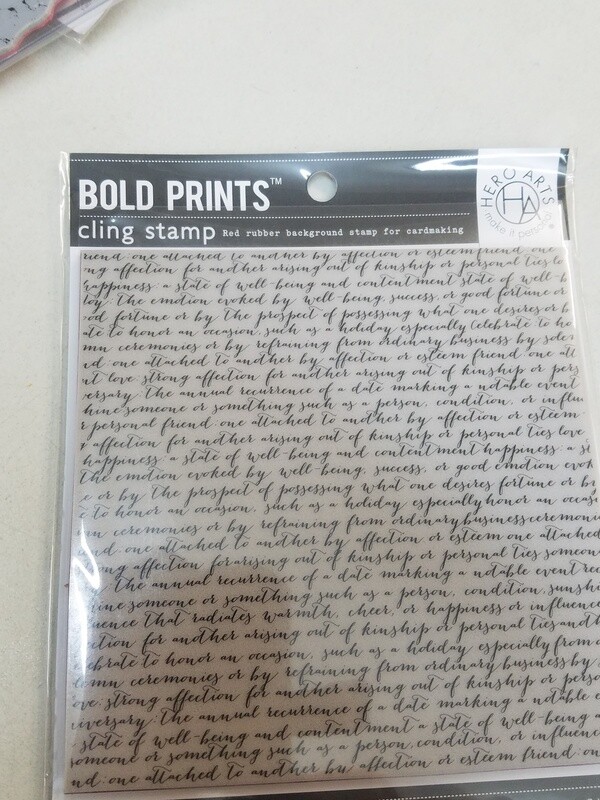 BOLD PRINTS™
cling stamp Red rubber background stamp for cardmaking
HERO ARTS
HA
make it personal
riend: one attached to another by affection or esteem friend: one
ng affection for another arising out of kinship or personal ties lo
happiness: a state of well-being and contentment state of well-b
joy: the emotion evoked by well-being, success, or good fortune or
od fortune or by the prospect of possessing what one desires or b
ate to honor an occasion, such as a holiday especially Celebrate to ho
mn ceremonies or by refraining from ordinary business by sole
nd: one attached to another by affection or esteem friend: one att
nt love: strong affection for another arising out of kinship or pers
versary: the annual recurrence of a date marking a notable event
hine: someone or something such as a person, condition, or influe
r personal friend: one attached to another by affection or esteem
affection for another arising out of kinship or personal ties love
happiness: a state of well-being and contentment happiness: a st
the emotion evoked by well-being, success, or good emotion evok
e or by the prospect of possessing what one desires fortune or by
e to honor an occasion, such as a holiday especially honor an occasi
mn ceremonies or by refraining from ordinary business ceremoni
end: one attached to another by affection or esteem one attached
ong affection for arising out of kinship or personal ties someone
the annual recurrence of a date marking a notable event rec
hine: someone or something such as a person, condition, sunshi
luence that radiates warmth, cheer, or happiness or influence
ection for another arising out of kinship or personal ties and th
elebrate to honor an occasion, such as a holiday especially from o
lemn ceremonies or by refraining from ordinary business by
ove: strong affection for another arising out of kinship or person
niversary: the annual recurrence of a date marking a notable e
state of well-being and contentment a state of well-being a
someone or something such as a person, condition, or influenc
nd: one attached to another by affection or esteem friend: on